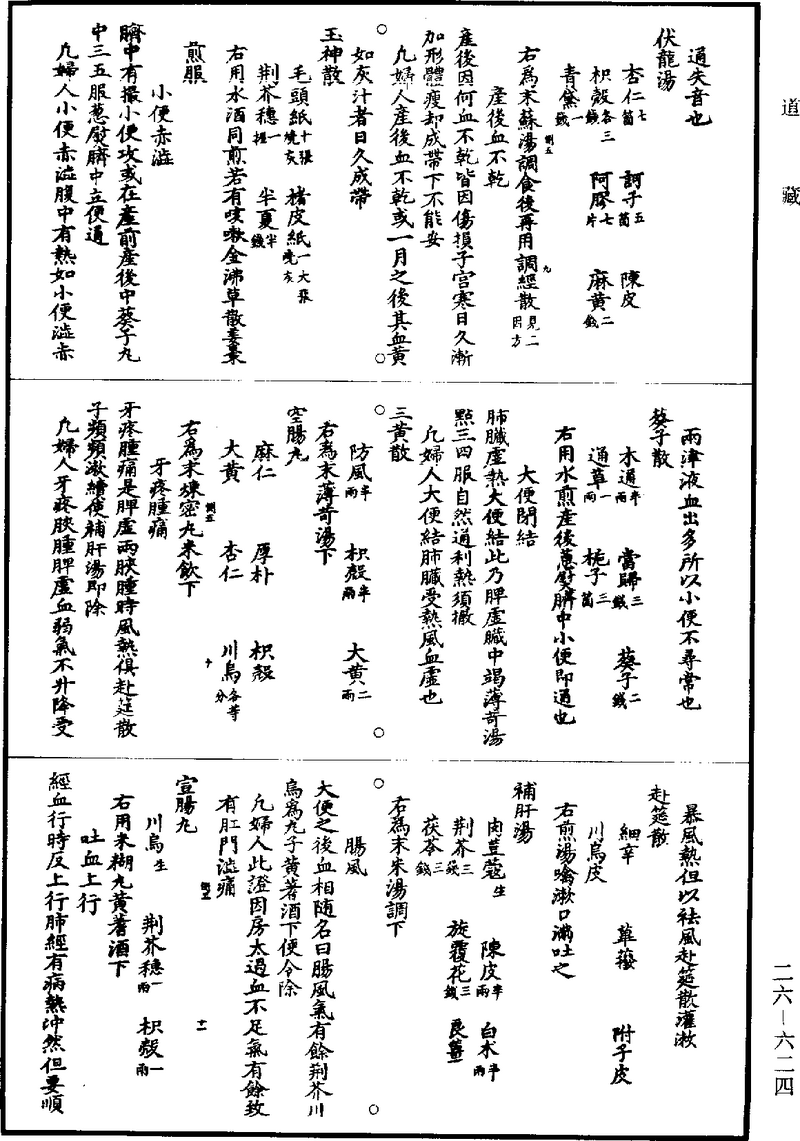 道藏
二六—六二四
通失音也
伏龍湯
杏仁七箇 訶子五箇 陳皮
枳殼各三錢 阿膠七片 麻黄二錢
青黛一錢
右爲末蘇湯調食後再用調經散見二因方
産後血不乾
産後因何血不乾皆因傷損子宫寒日久漸
加形體瘦却成帶下不能安
凡婦人産後血不乾或一月之後其血黄
如灰汁者日久成帶
玉神散
毛頭紙十張燒灰 楮皮紙一大張燒灰
荆芥穗一握 半夏半錢
右用水酒同煎若有咳嗽金沸草散姜棗
煎服
小便赤澁
臍中有撮小便攻或在産前産後中葵子丸
中三五服葱熨臍中立便通
凡婦人小便赤澁腹中有熱如小便澁赤
兩津液血出多所以小便不尋常也
葵子散
木通半兩 當歸三錢 葵子二錢
通草一兩 梔子三箇
右用水煎産後葱熨臍中小便即通也
大便閉結
肺臟虚熱大便結此乃脾虚臟中竭薄苛湯
點三四服自然通利熱須撤
凡婦人大便結肺臟受熱風血虚也
三黄散
防風半兩 枳殼半兩 大黄二兩
右爲末薄苛湯下
空腸丸
麻仁 厚朴 枳殼
大黄 杏仁 川烏各等分
右爲末煉蜜丸米飲下
牙疼腫痛
牙疼腫痛是脾虚兩腮腫時風熱俱赴筵散
子頻頻漱續使補肝湯即除
凡婦人牙疼腮腫脾虚血弱氣不升降受
暴風熱但以祛風赴筵散灌漱
赴筵散
細辛 蓽撥 附子皮
川烏皮
右煎湯噙漱口滿吐之
補肝湯
肉荳蔻生 陳皮半兩 白术半兩
荆芥三錢 旋覆花三錢 良薑一
茯苓三錢
右爲末朱湯調下
腸風
大便之後血相随名曰腸風氣有餘荆芥川
烏爲丸子黄蓍酒下便令除
凡婦人此證因房太過血不足氣有餘致
有肛門澁痛
宣腸丸
川烏生 荆芥穗一兩 枳殼一兩
右用米糊丸黄蓍酒下
吐血上行
經血行時反上行肺經有病熱冲然但要順